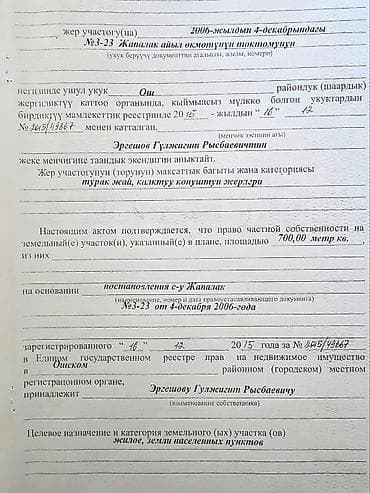 жер участогу(на) 2006-жылдын 4-декабрындагы
№3-23 Жапалак айыл окмотунун токтомунун
(укук берүүчү документтин аталышы, жылы, номери)
негизинде ушул укук Ош райондук (шаардык)
жергиликтүү каттоо органында, кыймылсыз мүлккө болгон укуктардын
бирдиктүү мамлекеттик реестринде 20 15 - жылдын “ 16 ” 12
№ менен катталган.
(менчик ээсинин аты)
Эргешов Гүлжигит Рысбаевичтин
жеке менчигине таандык экендигин аныктайт.
Жер участогунун (торунун) максаттык багыты жана категориясы
турак жай, калктуу конуштун жерлери
Настоящим актом подтверждается, что право частной собственности на
земельный(е) участок(и), указанный(е) в плане, площадью 700,00 метр кв.
из них
на основании постановления с-у Жапалак
(наименование, номер и дата правоустанавливающего документа)
№3-23 от 4-декабря 2006-года
зарегистрированного “ 16 ” 12 2015 года за №
в Едином государственном реестре прав на недвижимое имущество
в Ошском районном (городском) местном
регистрационном органе,
принадлежит Эргешову Гулжигит Рысбаевичу
(наименование собственника)
Целевое назначение и категория земельного (ых) участка (ов)
жилое, земли населенных пунктов